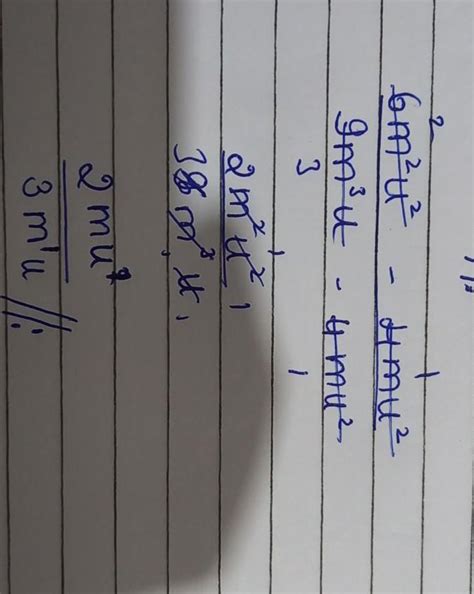 2 1
6m²u² - 4mu²
9m³u - 4mu²
3 1
1
2m²u² 1
3 m³ u,
2mu
3m'u //: